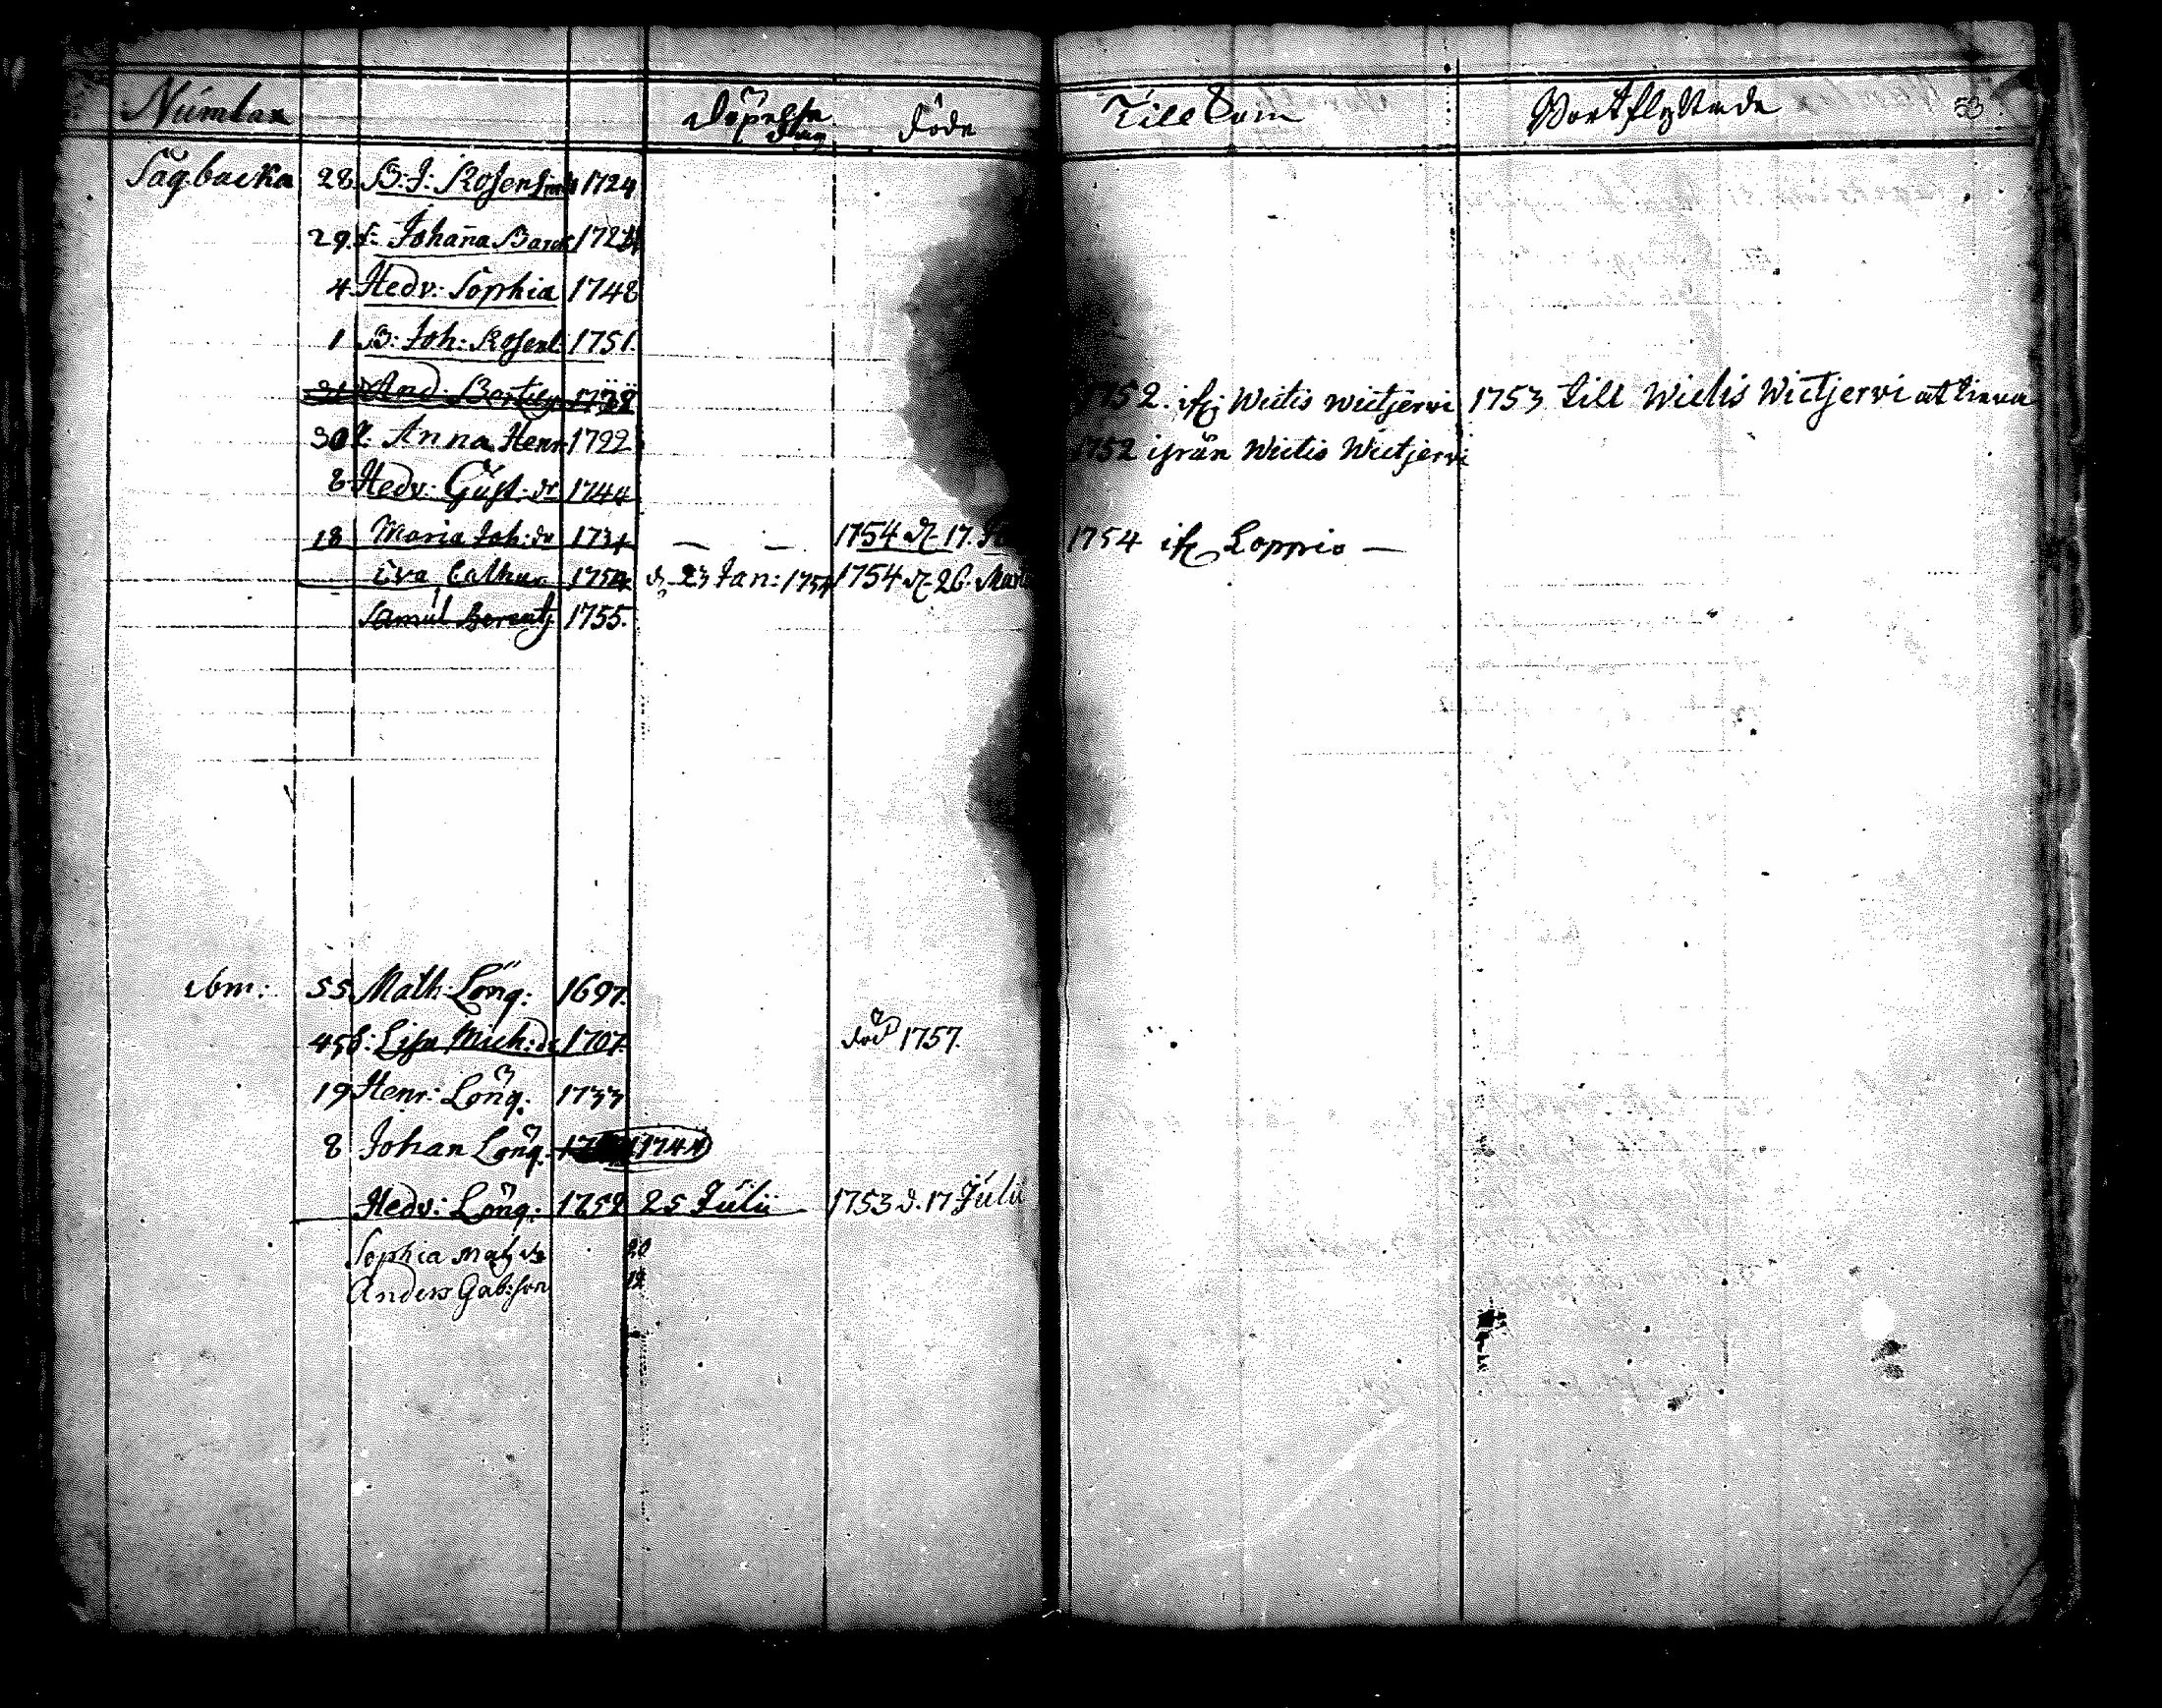 Númlax Döpelse dag Döde Till Kom Bortflyttade 53
Sågbacka 28. B: J: Rosenl 1724
29. h: Johan̄a Barck 172
4 Hedv: Sophia 1748
1 B: Joh: Rosenl: 1751.
31 And: Bertils 1722 1752. ifr: Wictis Wictjervi 1753 till Wictis Wictjervi at tiena
30 h: Anna Henr 1722 1752 ifrån Wictis Wictjervi
8 Hedv: Gúst: dr 1744
18 Maria Joh: dr 1734 — — 1754 d. 17. 1754 ifr Loppis —
Eva Cathar 1754 d. 23 Jan: 1754 1754 d. 26. Marti
Samúl Berentz 1755.
ibm: 55 Math: Lönq: 1697.
45 h: Lisa Mich: dr 1707. död 1757.
19 Henr: Lönq: 1733
8 Johan Lönq: 1744
Hedv: Lönq: 1752 25 Júlii 1753 d. 17 Júlii
Sophia Matz dr 20
Anders Gab:son 12